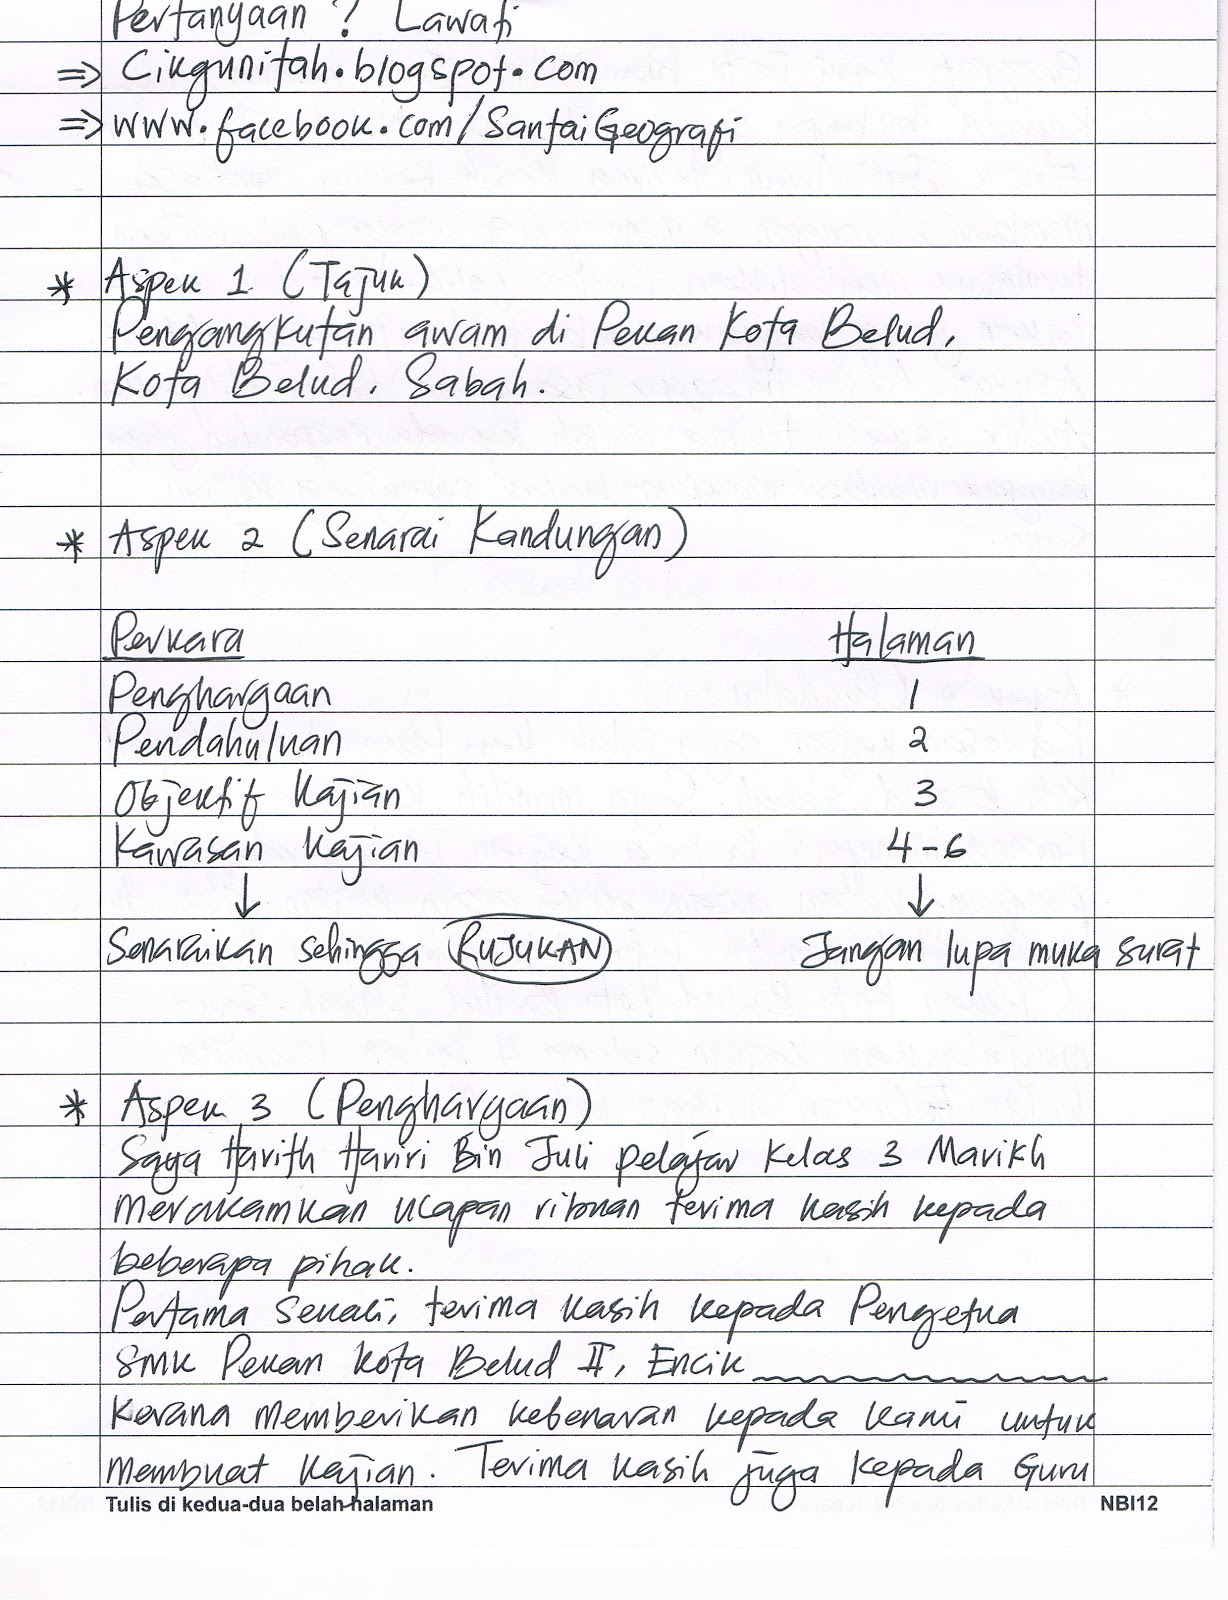 Pertanyaan ? Lawati
⇒ Cikgunitah.blogspot.com
⇒ www.facebook.com/SantaiGeografi
* Aspek 1 (Tajuk)
Pengangkutan awam di Pekan Kota Belud,
Kota Belud, Sabah.
* Aspek 2 (Senarai Kandungan)
Perkara Halaman
Penghargaan 1
Pendahuluan 2
Objektif Kajian 3
Kawasan Kajian 4-6
↓ ↓
Senaraikan sehingga RUJUKAN Jangan lupa muka surat
* Aspek 3 (Penghargaan)
Saya Harith Hariri Bin Juli pelajar Kelas 3 Marikh
merakamkan ucapan ribuan terima kasih kepada
beberapa pihak.
Pertama sekali, terima kasih kepada Pengetua
SMK Pekan Kota Belud II, Encik
Kerana memberikan kebenaran kepada kami untuk
membuat kajian. Terima kasih juga kepada Guru
Tulis di kedua-dua belah halaman NBI12